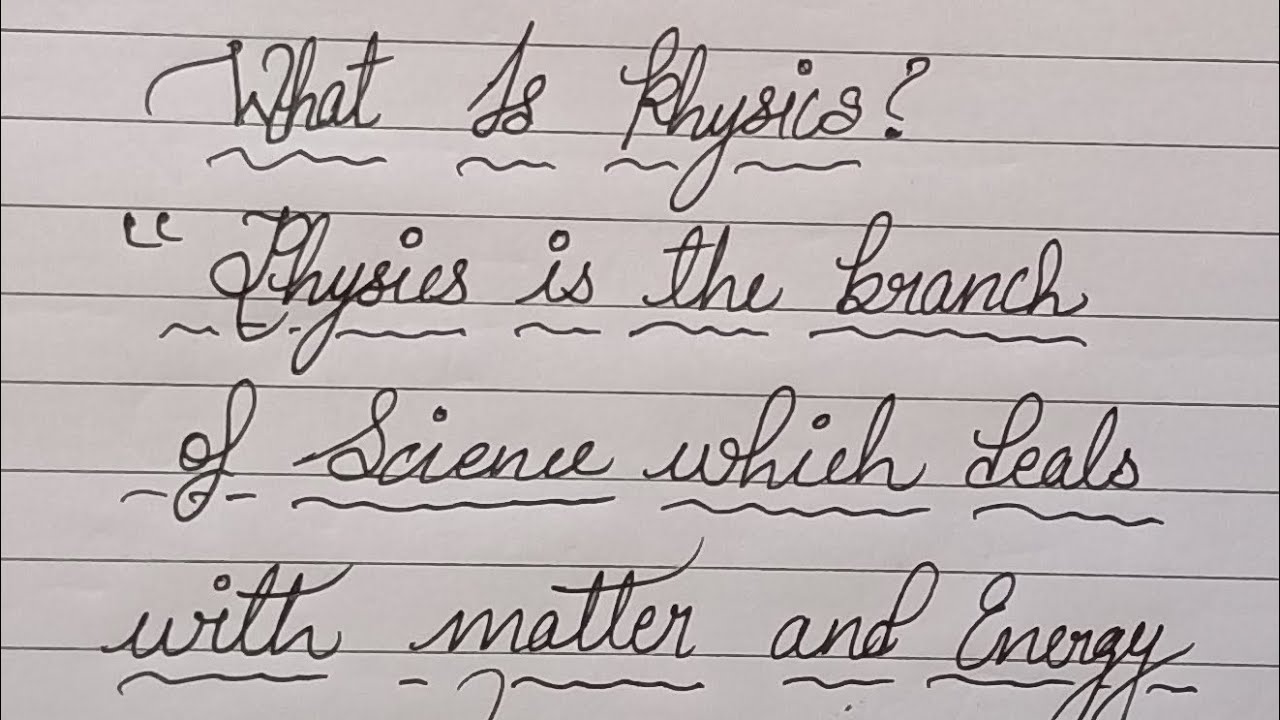 What Is Physics?
“ Physics is the branch
of Science which deals
with matter and Energy